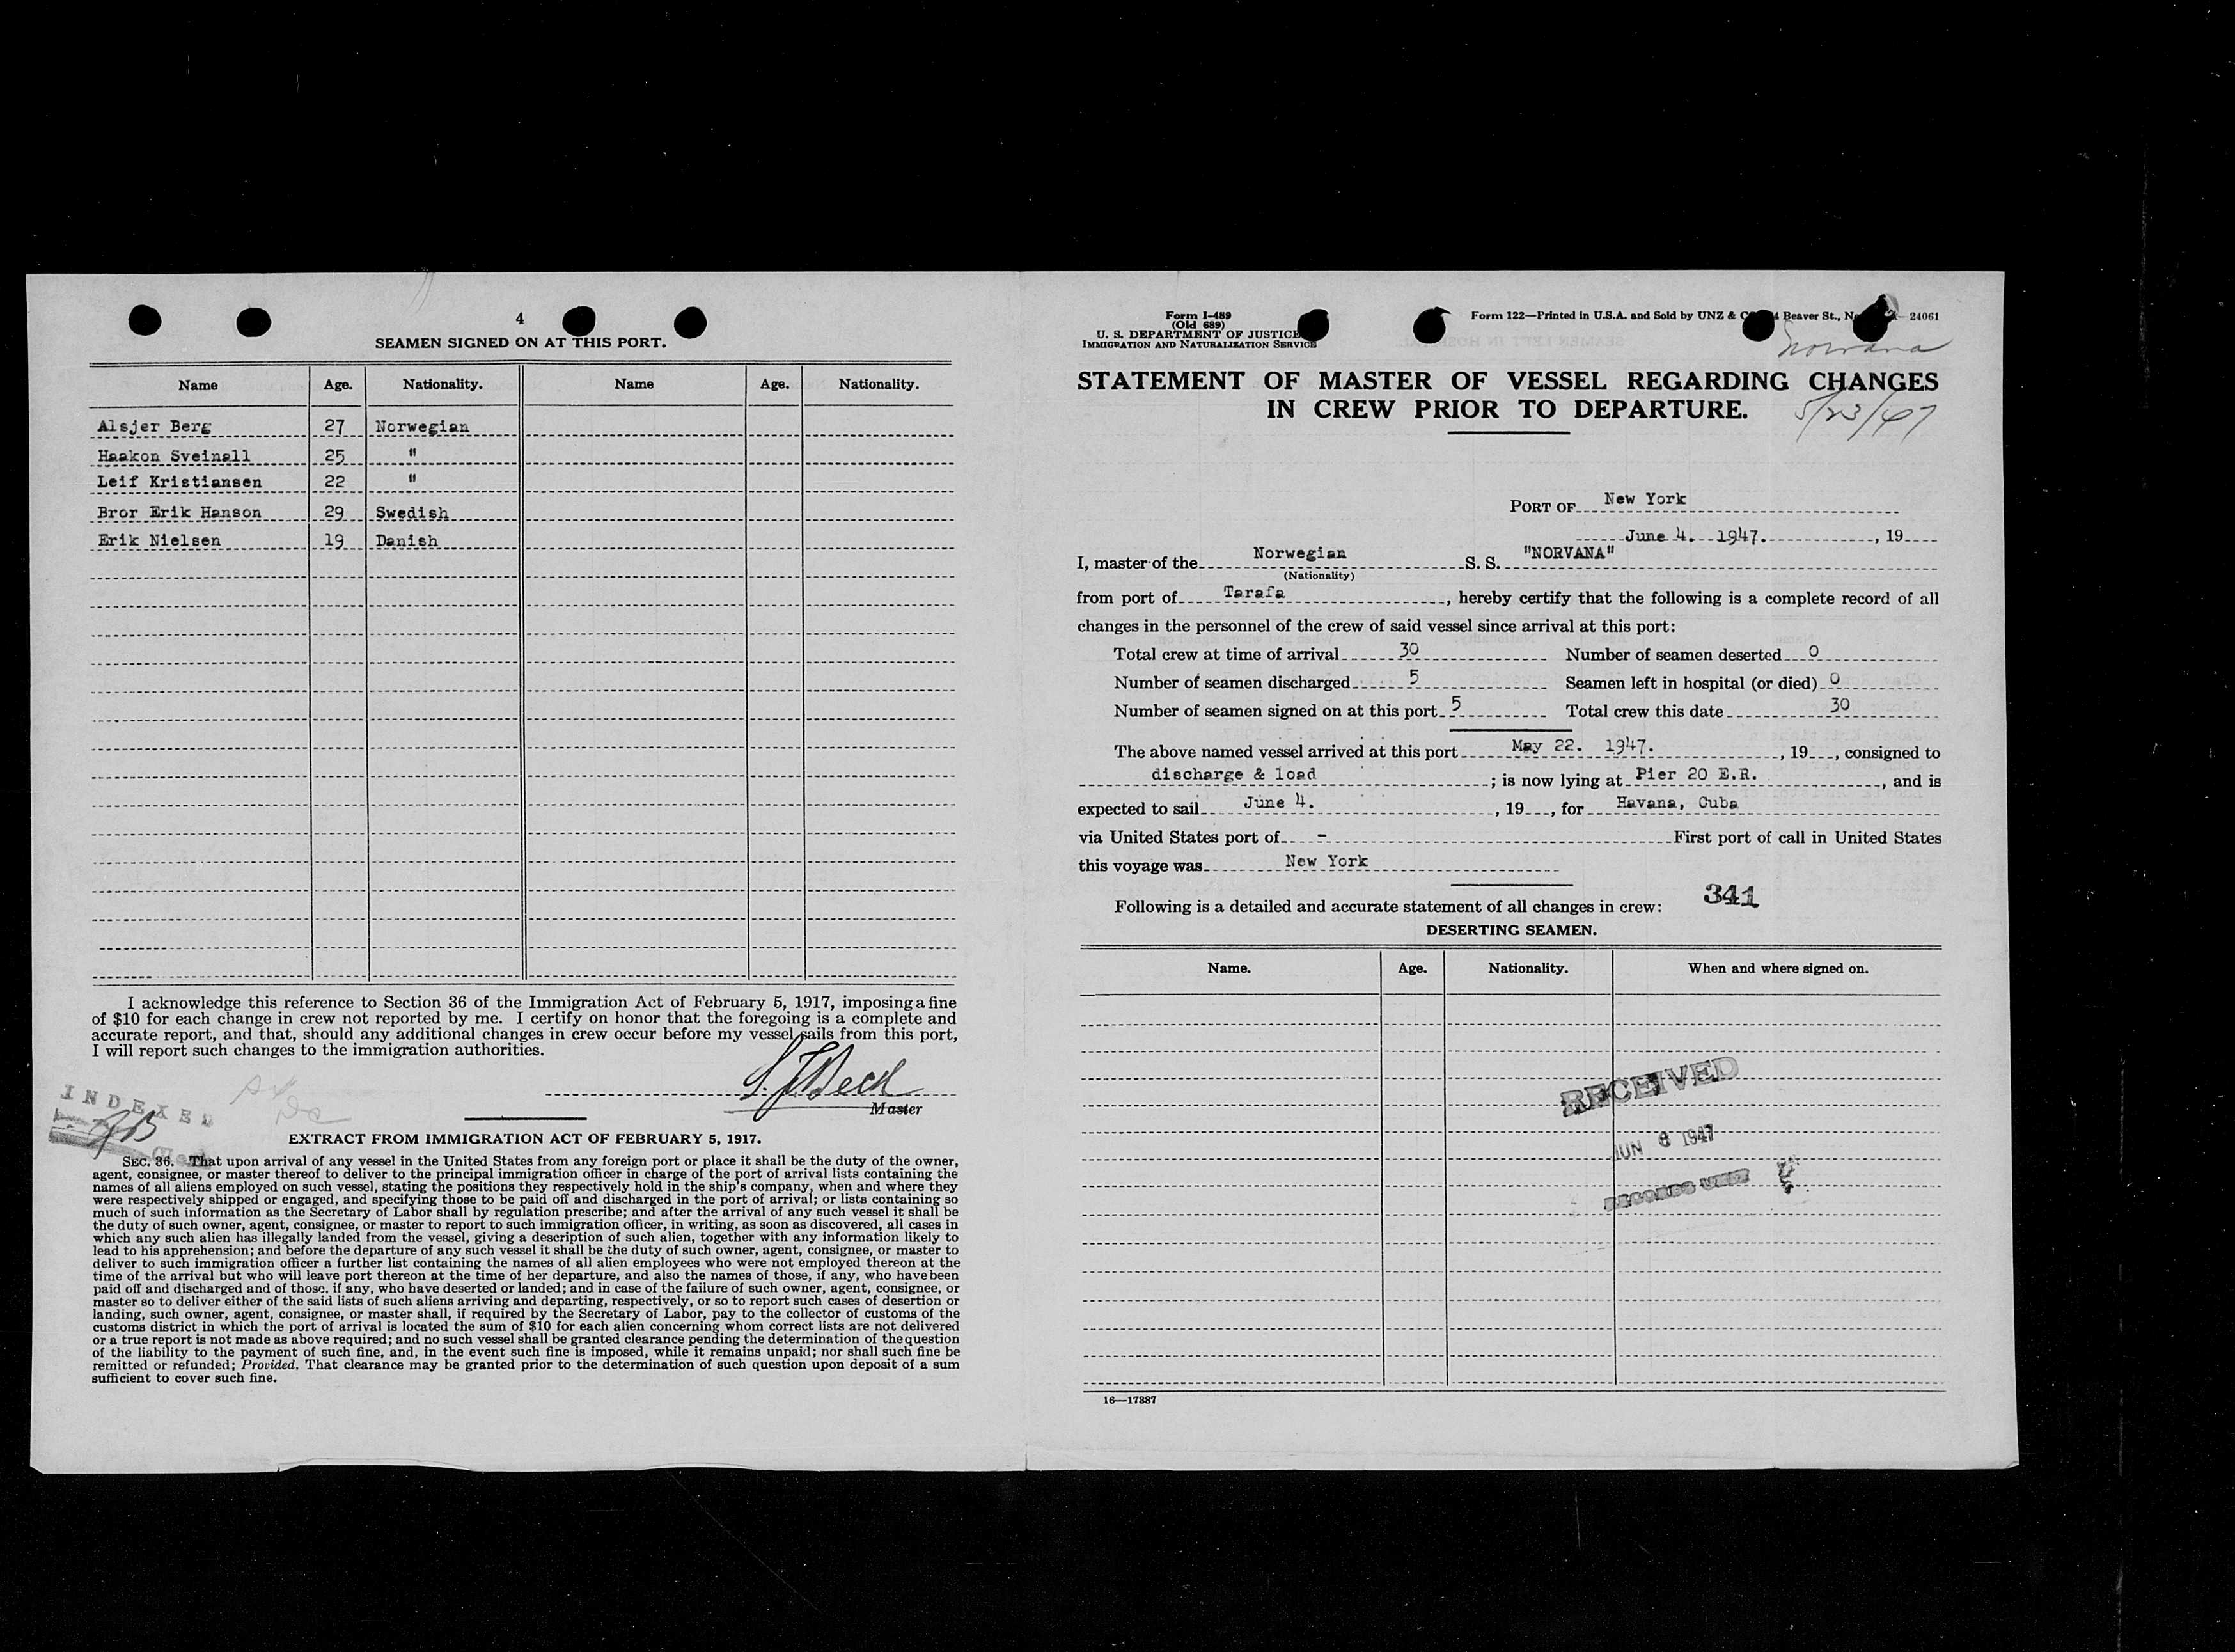 4
SEAMEN SIGNED ON AT THIS PORT.
Name Age. Nationality. Name Age. Nationality.
Alsjer Berg 27 Norwegian
Haakon Sveinall 25 "
Leif Kristiansen 22 "
Bror Erik Hanson 29 Swedish
Erik Nielsen 19 Danish
I acknowledge this reference to Section 36 of the Immigration Act of February 5, 1917, imposing a fine
of $10 for each change in crew not reported by me. I certify on honor that the foregoing is a complete and
accurate report, and that, should any additional changes in crew occur before my vessel sails from this port,
I will report such changes to the immigration authorities.
Master
INDEXED
EXTRACT FROM IMMIGRATION ACT OF FEBRUARY 5, 1917.
SEC. 36. That upon arrival of any vessel in the United States from any foreign port or place it shall be the duty of the owner,
agent, consignee, or master thereof to deliver to the principal immigration officer in charge of the port of arrival lists containing the
names of all aliens employed on such vessel, stating the positions they respectively hold in the ship's company, when and where they
were respectively shipped or engaged, and specifying those to be paid off and discharged in the port of arrival; or lists containing so
much of such information as the Secretary of Labor shall by regulation prescribe; and after the arrival of any such vessel it shall be
the duty of such owner, agent, consignee, or master to report to such immigration officer, in writing, as soon as discovered, all cases in
which any such alien has illegally landed from the vessel, giving a description of such alien, together with any information likely to
lead to his apprehension; and before the departure of any such vessel it shall be the duty of such owner, agent, consignee, or master to
deliver to such immigration officer a further list containing the names of all alien employees who were not employed thereon at the
time of the arrival but who will leave port thereon at the time of her departure, and also the names of those, if any, who have been
paid off and discharged and of those, if any, who have deserted or landed; and in case of the failure of such owner, agent, consignee, or
master so to deliver either of the said lists of such aliens arriving and departing, respectively, or so to report such cases of desertion or
landing, such owner, agent, consignee, or master shall, if required by the Secretary of Labor, pay to the collector of customs of the
customs district in which the port of arrival is located the sum of $10 for each alien concerning whom correct lists are not delivered
or a true report is not made as above required; and no such vessel shall be granted clearance pending the determination of the question
of the liability to the payment of such fine, and, in the event such fine is imposed, while it remains unpaid; nor shall such fine be
remitted or refunded; Provided, That clearance may be granted prior to the determination of such question upon deposit of a sum
sufficient to cover such fine.
Form I-489
(Old 689)
U. S. DEPARTMENT OF JUSTICE
IMMIGRATION AND NATURALIZATION SERVICE
Form 122—Printed in U.S.A. and Sold by UNZ & Beaver St., —24061
Norvana
STATEMENT OF MASTER OF VESSEL REGARDING CHANGES
IN CREW PRIOR TO DEPARTURE.
5/23/47
PORT OF New York
June 4. 1947. , 19
I, master of the Norwegian S. S. "NORVANA"
(Nationality)
from port of Tarafa , hereby certify that the following is a complete record of all
changes in the personnel of the crew of said vessel since arrival at this port:
Total crew at time of arrival 30 Number of seamen deserted 0
Number of seamen discharged 5 Seamen left in hospital (or died) 0
Number of seamen signed on at this port 5 Total crew this date 30
The above named vessel arrived at this port May 22. 1947. , 19 , consigned to
discharge & load ; is now lying at Pier 20 E.R. , and is
expected to sail June 4. , 19 , for Havana, Cuba
via United States port of - First port of call in United States
this voyage was New York
341
Following is a detailed and accurate statement of all changes in crew:
DESERTING SEAMEN.
Name. Age. Nationality. When and where signed on.
RECEIVED
JUN 6 1947
RECORDS UNIT
16—17887